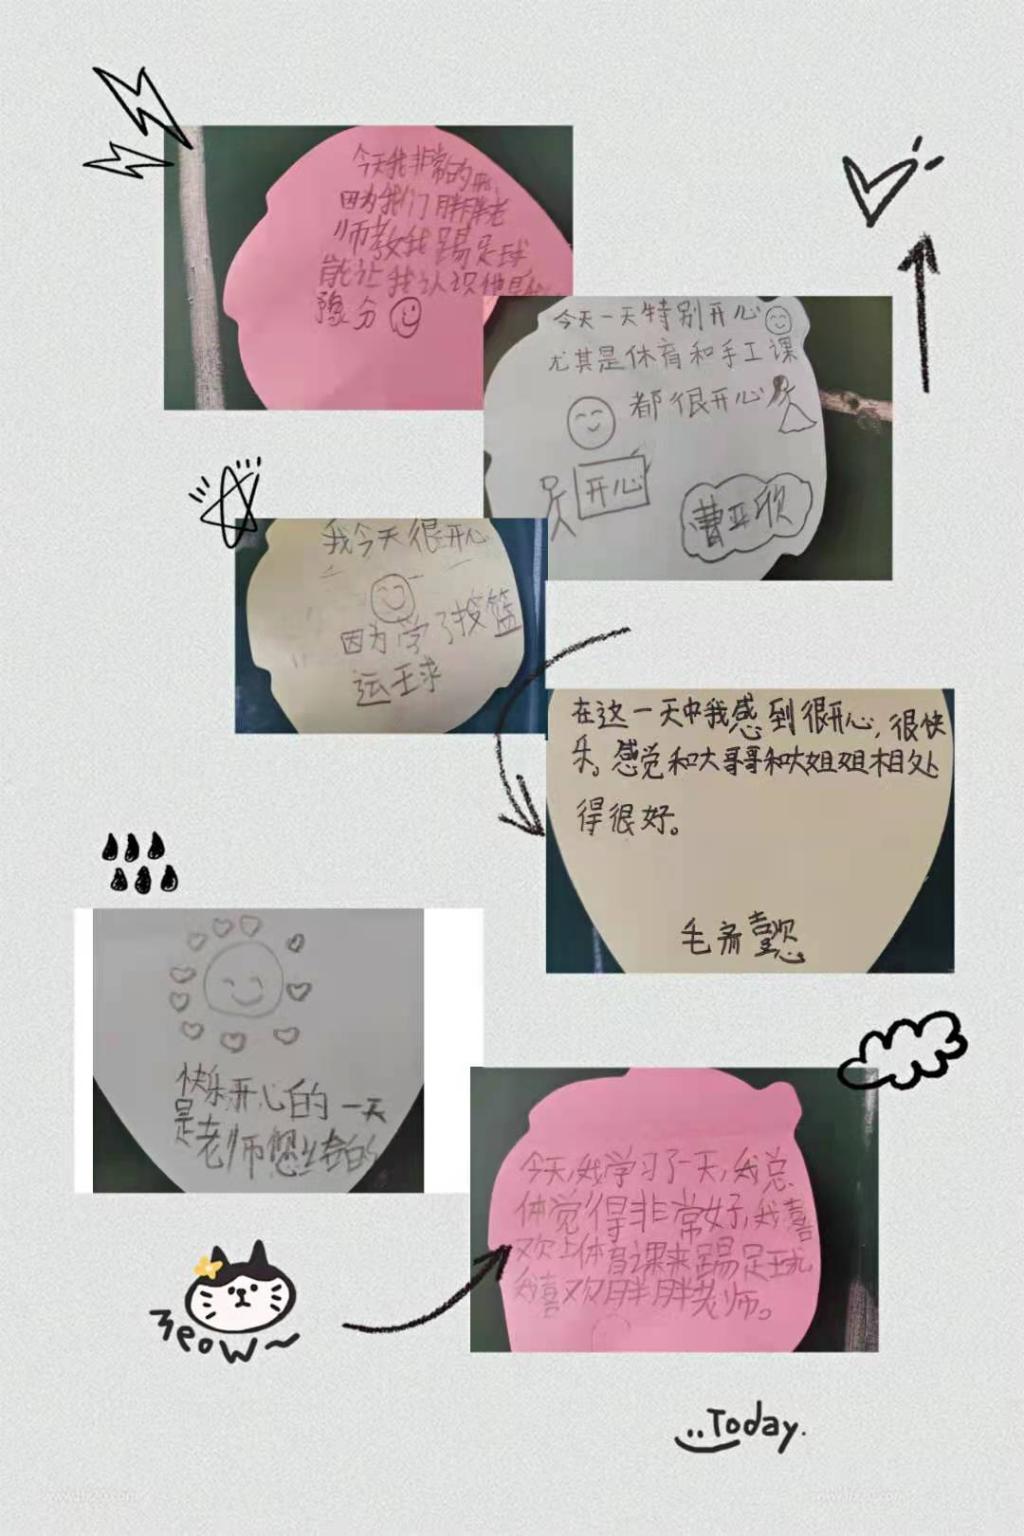 今天我非常的开心
因为我们胖胖老
师教我踢足球
能让我认识他是
缘分
今天一天特别开心
尤其是体育和手工课
都很开心
开心
曹亚欣
我今天很开心
因为学了投篮
运王求
在这一天中我感到很开心,很快
乐。感觉和大哥哥和大姐姐相处
得很好。
毛
快乐开心的一天
是老师您给的
今天,我学习了一天,我总
体觉得非常好,我喜
欢上体育课来踢足球
我喜欢胖胖老师。
meow~
Today.